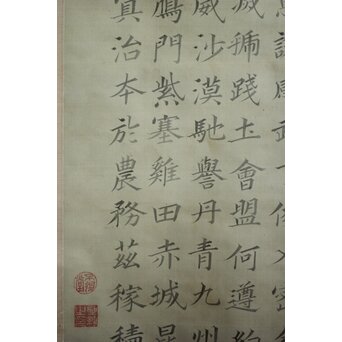 說感武丁俊乂密
滅虢踐土會盟何遵約
威沙漠馳譽丹青九州
鴈門紫塞雞田赤城昆
冥治本於農務茲稼穡